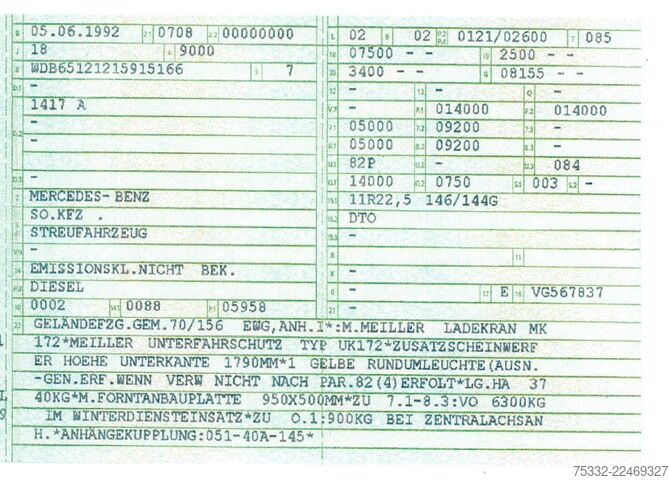 B 05.06.1992 2.1 0708 2.2 00000000
J 18 4 9000
E WDB65121215915166 3 7
D.1 -
1417 A
D.2 -
-
-
D.3 -
2 MERCEDES-BENZ
5 SO.KFZ .
STREUFAHRZEUG
V.9 -
14 EMISSIONSKL.NICHT BEK.
P.3 DIESEL
10 0002 14.1 0088 P.1 05958
L 02 9 02 P.2 P.4 0121/02600 T 085
18 07500 - - 19 2500 - -
20 3400 - - G 08155 - -
12 - 13 - Q -
V.7 - F.1 014000 F.2 014000
7.1 05000 7.2 09200 7.3 -
8.1 05000 8.2 09200 8.3 -
U.1 82P U.2 - U.3 084
O.1 14000 O.2 0750 S.1 003 S.2 -
15.1 11R22,5 146/144G
15.2 DTO
15.3 -
R - 11
K -
6 - 17 E 16 VG567837
21 -
22 GELÄNDEFZG.GEM.70/156 EWG,ANH.I*:M.MEILLER LADEKRAN MK
172*MEILLER UNTERFAHRSCHUTZ TYP UK172*ZUSATZSCHEINWERF
ER HOEHE UNTERKANTE 1790MM*1 GELBE RUNDUMLEUCHTE(AUSN.
-GEN.ERF.WENN VERW NICHT NACH PAR.82(4)ERFOLT*LG.HA 37
40KG*M.FORNTANBAUPLATTE 950X500MM*ZU 7.1-8.3:VO 6300KG
IM WINTERDIENSTEINSATZ*ZU O.1:900KG BEI ZENTRALACHSAN
H.*ANHÄNGEKUPPLUNG:051-40A-145*
75332-22469327